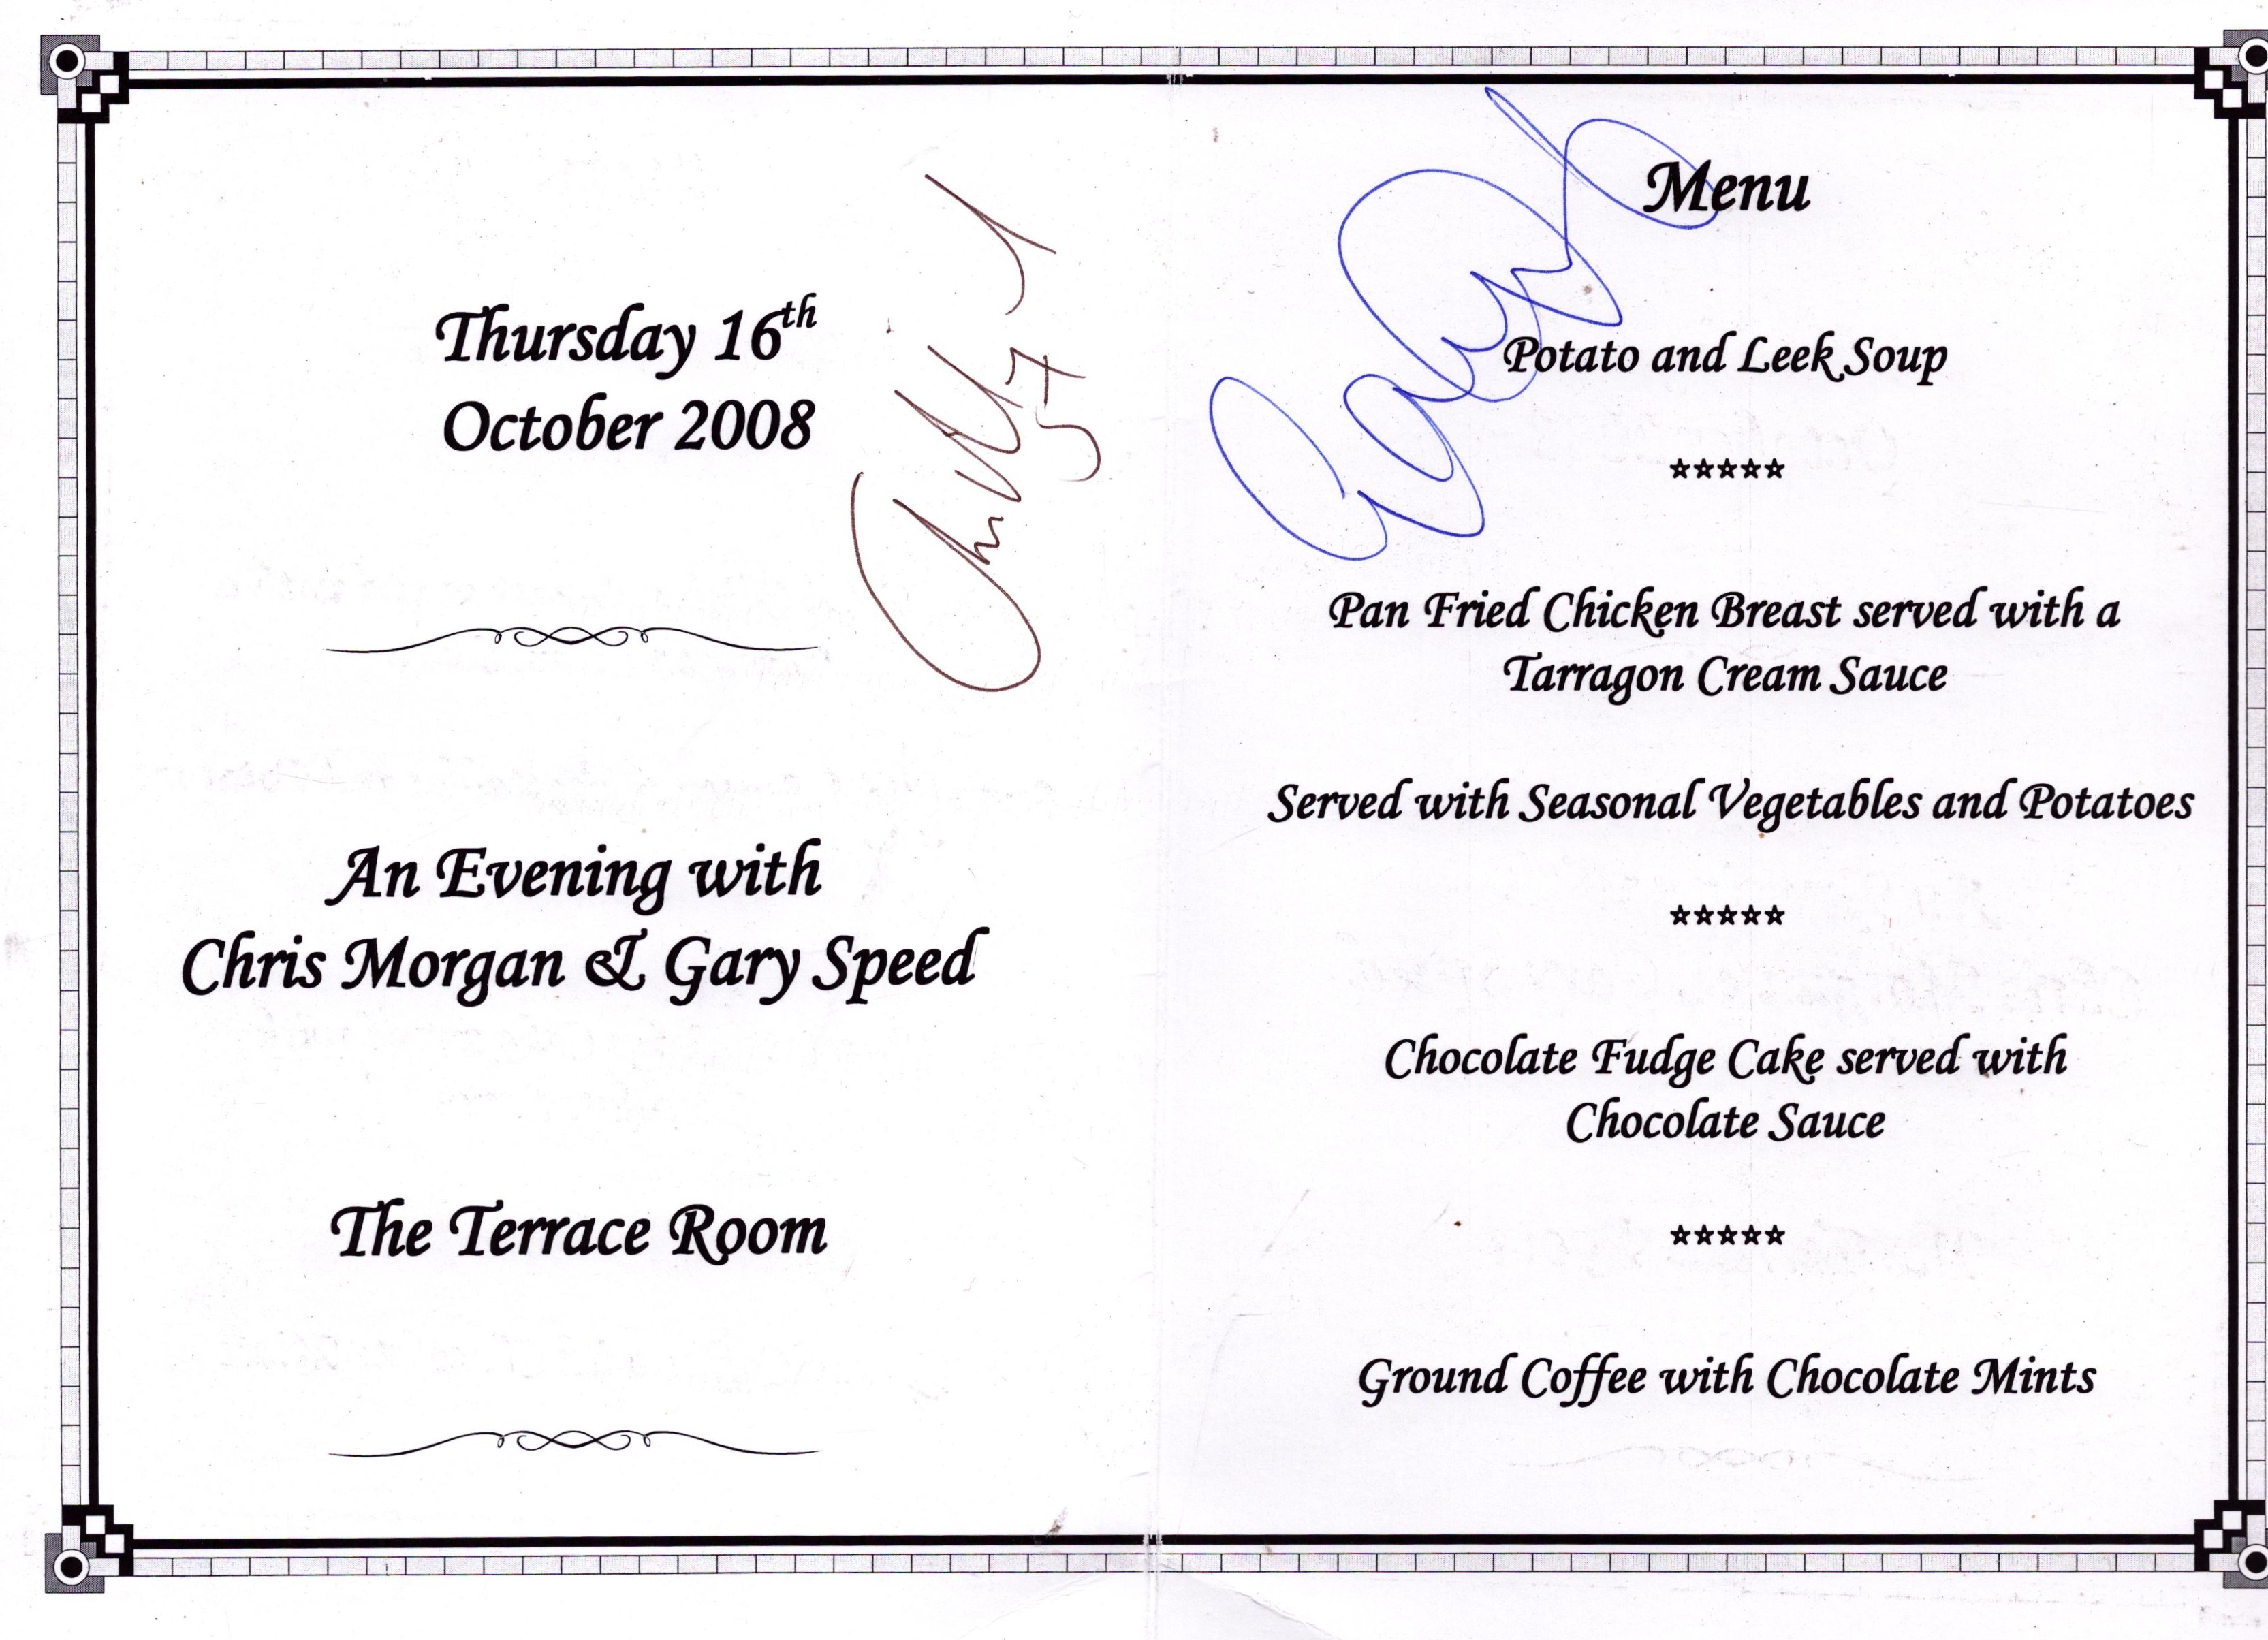 Thursday 16th
October 2008
An Evening with
Chris Morgan & Gary Speed
The Terrace Room
Menu
Potato and Leek Soup
*****
Pan Fried Chicken Breast served with a
Tarragon Cream Sauce
Served with Seasonal Vegetables and Potatoes
*****
Chocolate Fudge Cake served with
Chocolate Sauce
*****
Ground Coffee with Chocolate Mints